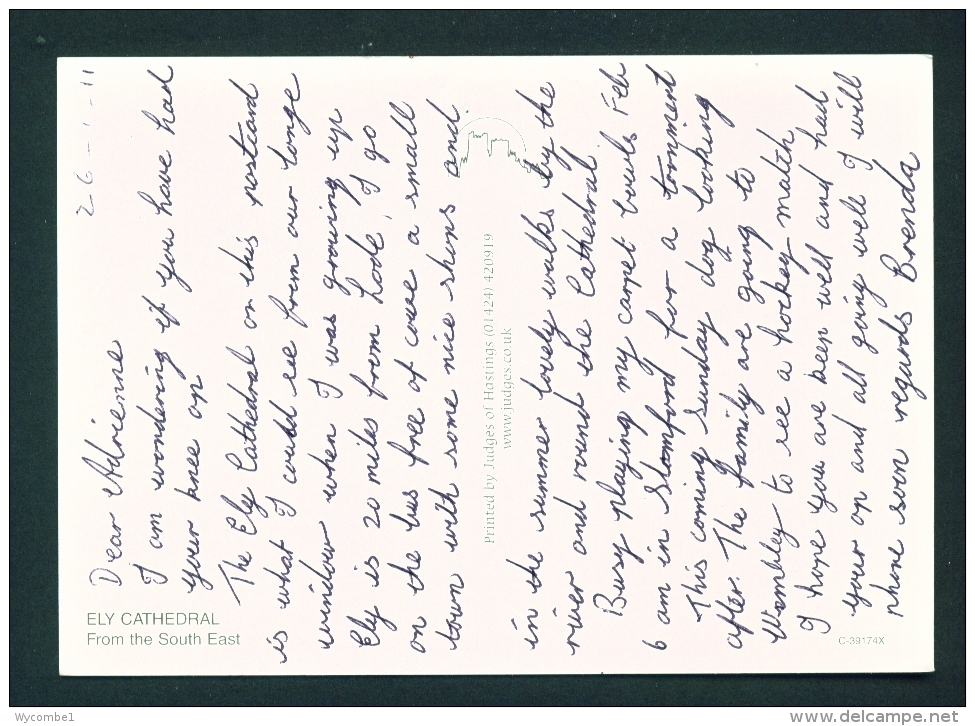 26-1-11
Dear Adrienne
I am wondering if you have had
your knee op
The Ely Cathedral on this postcard
is what I could see from our longe
window when I was growing up
Ely is 20 miles from Lode, I go
on the bus free of couse a small
town with some nice shops and
in the summer lovely walks by the
river and round the Cathedral
Busy playing my carpet bowls Feb
6 am in Stamford for a toonment
This coming Sunday dog looking
after. The family are going to
Wembley to see a hockey match
I hope you are been well and had
your op and all going well I will
phone soon regards Brenda
Printed by Judges of Hastings (01424) 420919
www.judges.co.uk
ELY CATHEDRAL
From the South East
C-39174X
Wycombe1
delcampe.net